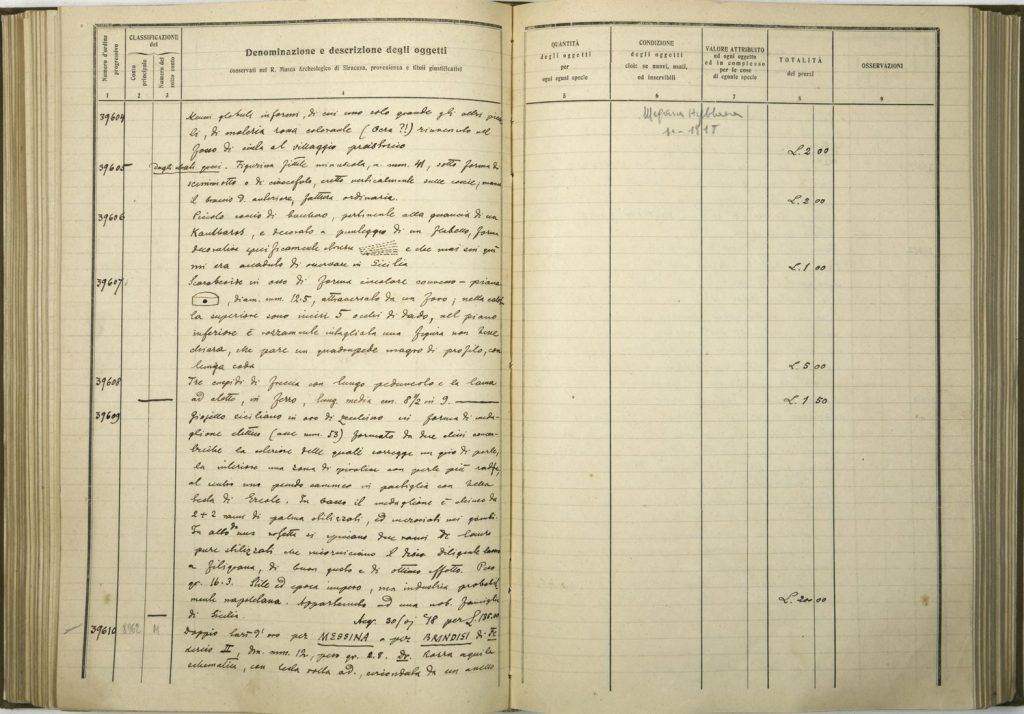 Numero d'ordine progressivo
CLASSIFICAZIONE del
Conto principale
Numero del sotto conto
Denominazione e descrizione degli oggetti
conservati nel R. Museo Archeologico di Siracusa, provenienza e titoli giustificativi
1 2 3 4
39604 globuli informi, di cui uno solo grande gli altri
li, di materia rosa colorante (Ocra ?!) rinvenuto nel
fosso di cinta al villaggio preistorico
39605 Dagli stessi Figurina fittile minuscola, a mm. 41, sotto forma di
scimmiotto o di cinocefalo, eretto verticalmente sulle coscie,
il braccio d. anteriore, fattura ordinaria.
39606 Piccolo coccio di bucchero, pertinente alla guancia di un
Kantharos, e decorato a punteggio di un flabello, forma
decorativa specificamente e che mai
mi era accaduto di in Sicilia
39607 in osso di forma circolare convesso-piana
, diam. mm. 12.5, attraversato da un foro; nella
la superiore sono incisi 5 occhi di dado, nel piano
inferiore è rozzamente intagliata una figura non bene
chiara, che pare un quadrupede magro di profilo, con
lunga coda
39608 Tre cuspidi di freccia con lungo peduncolo e la lama
ad in ferro, lung. media cm. 8 1/2 in 9.
39609 Gioiello siciliano in oro di zecchino in forma di meda-
glione (asse mm. 53) formato da due dischi concen-
la delle quali corregge un giro di perle,
la interiore una zona di con perle più
al centro uno pseudo cammeo in pastiglia con bella
testa di Ercole. In basso il medaglione è chiuso da
2+2 rami di palma stilizzati, ed incrociati nei gambi.
In alto da una rosetta si spiccano due rami di lauro
pure stilizzati che incorniciano il disco. Diligente lavoro
a filigrana, di buon gusto e di ottimo effetto. Peso
gr. 16.3. Stile ed epoca impero, ma industria probabil-
mente napoletana. Appartenuto ad una nob. famiglia
di Sicilia. Acq. 30/ '18 per L.
39610 8962 M Doppio d'oro per MESSINA e per BRINDISI di Fe
derico II, Dm. mm. 12, peso gr. 2.8. Dr. Rozza aquila
schematica, con testa volta a d., circondata da un anello
QUANTITÀ degli oggetti per ogni egual specie
CONDIZIONE degli oggetti cioè: se nuovi, usati, od inservibili
VALORE ATTRIBUITO ad ogni oggetto ed in complesso per le cose di eguale specie
TOTALITÀ dei prezzi
OSSERVAZIONI
5 6 7 8 9
Megara Hyblaea
L. 2 00
L. 2 00
L. 1 00
L. 5 00
L. 1 50